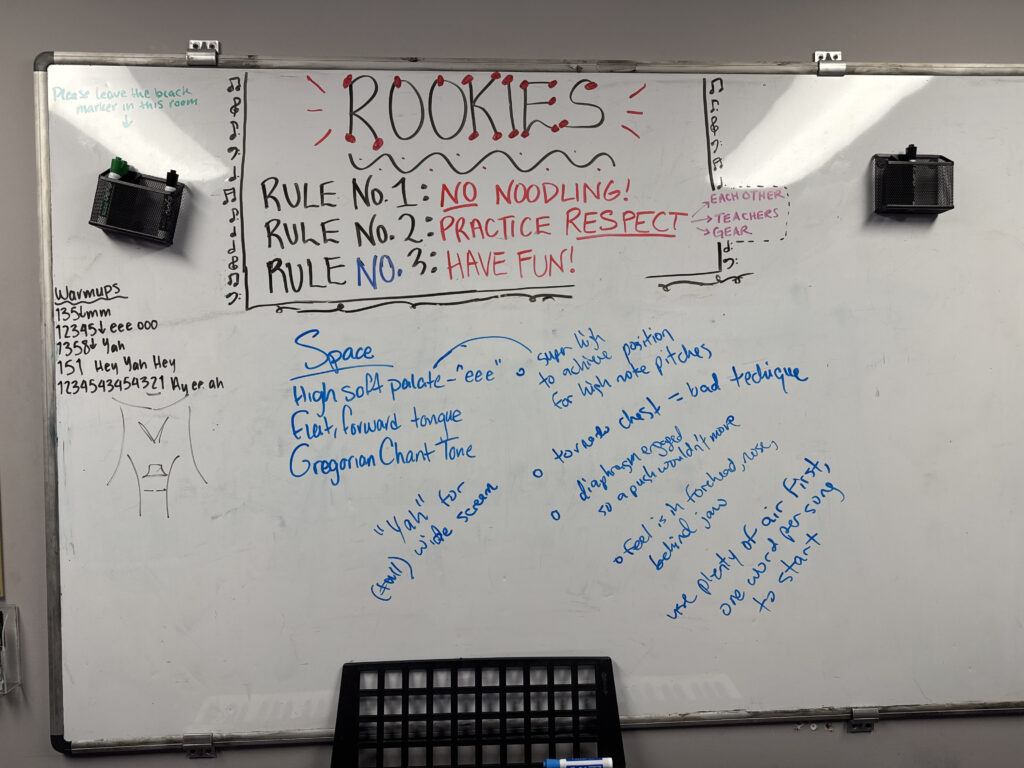 Please leave the black
marker in this room
ROOKIES
RULE No. 1: NO NOODLING!
RULE No. 2: PRACTICE RESPECT
EACH OTHER
TEACHERS
GEAR
RULE NO. 3: HAVE FUN!
Warmups
135↓mm
12345↓ eee ooo
1358↓ Yah
151 Hey Yah Hey
1234543454321 ah
Space
High soft palate - "eee"
forward tongue
Gregorian Chant Tone
super high
to achieve position
for high note pitches
tornado chest = bad techique
diaphragm engaged
so a push wouldn't move
feel is in forehead, nose,
behind jaw
use plenty of air first,
one word per song
to start
"Yah" for
(tall) wide scream